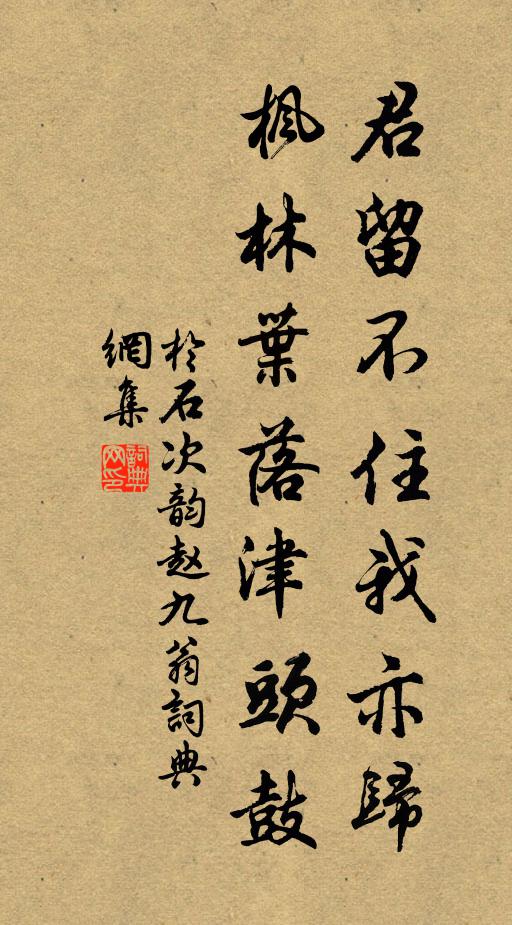 君留不住我亦歸
楓林葉落津頭鼓
於石次韵赵九翁詞典
網集
詞典
网印